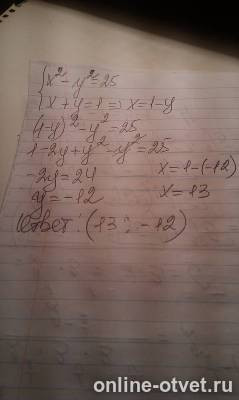 {x² - y² = 25
x + y = 1 => x = 1 - y
(1-y)² - y² = 25
1 - 2y + y² - y² = 25
-2y = 24
y = -12
x = 1 - (-12)
x = 13
Ответ: (13; -12)
online-otvet.ru